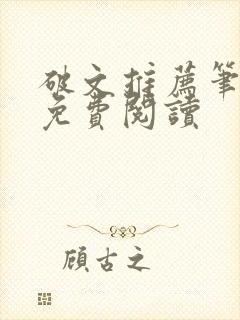 破文推薦筆
免費閱讀
顧古之